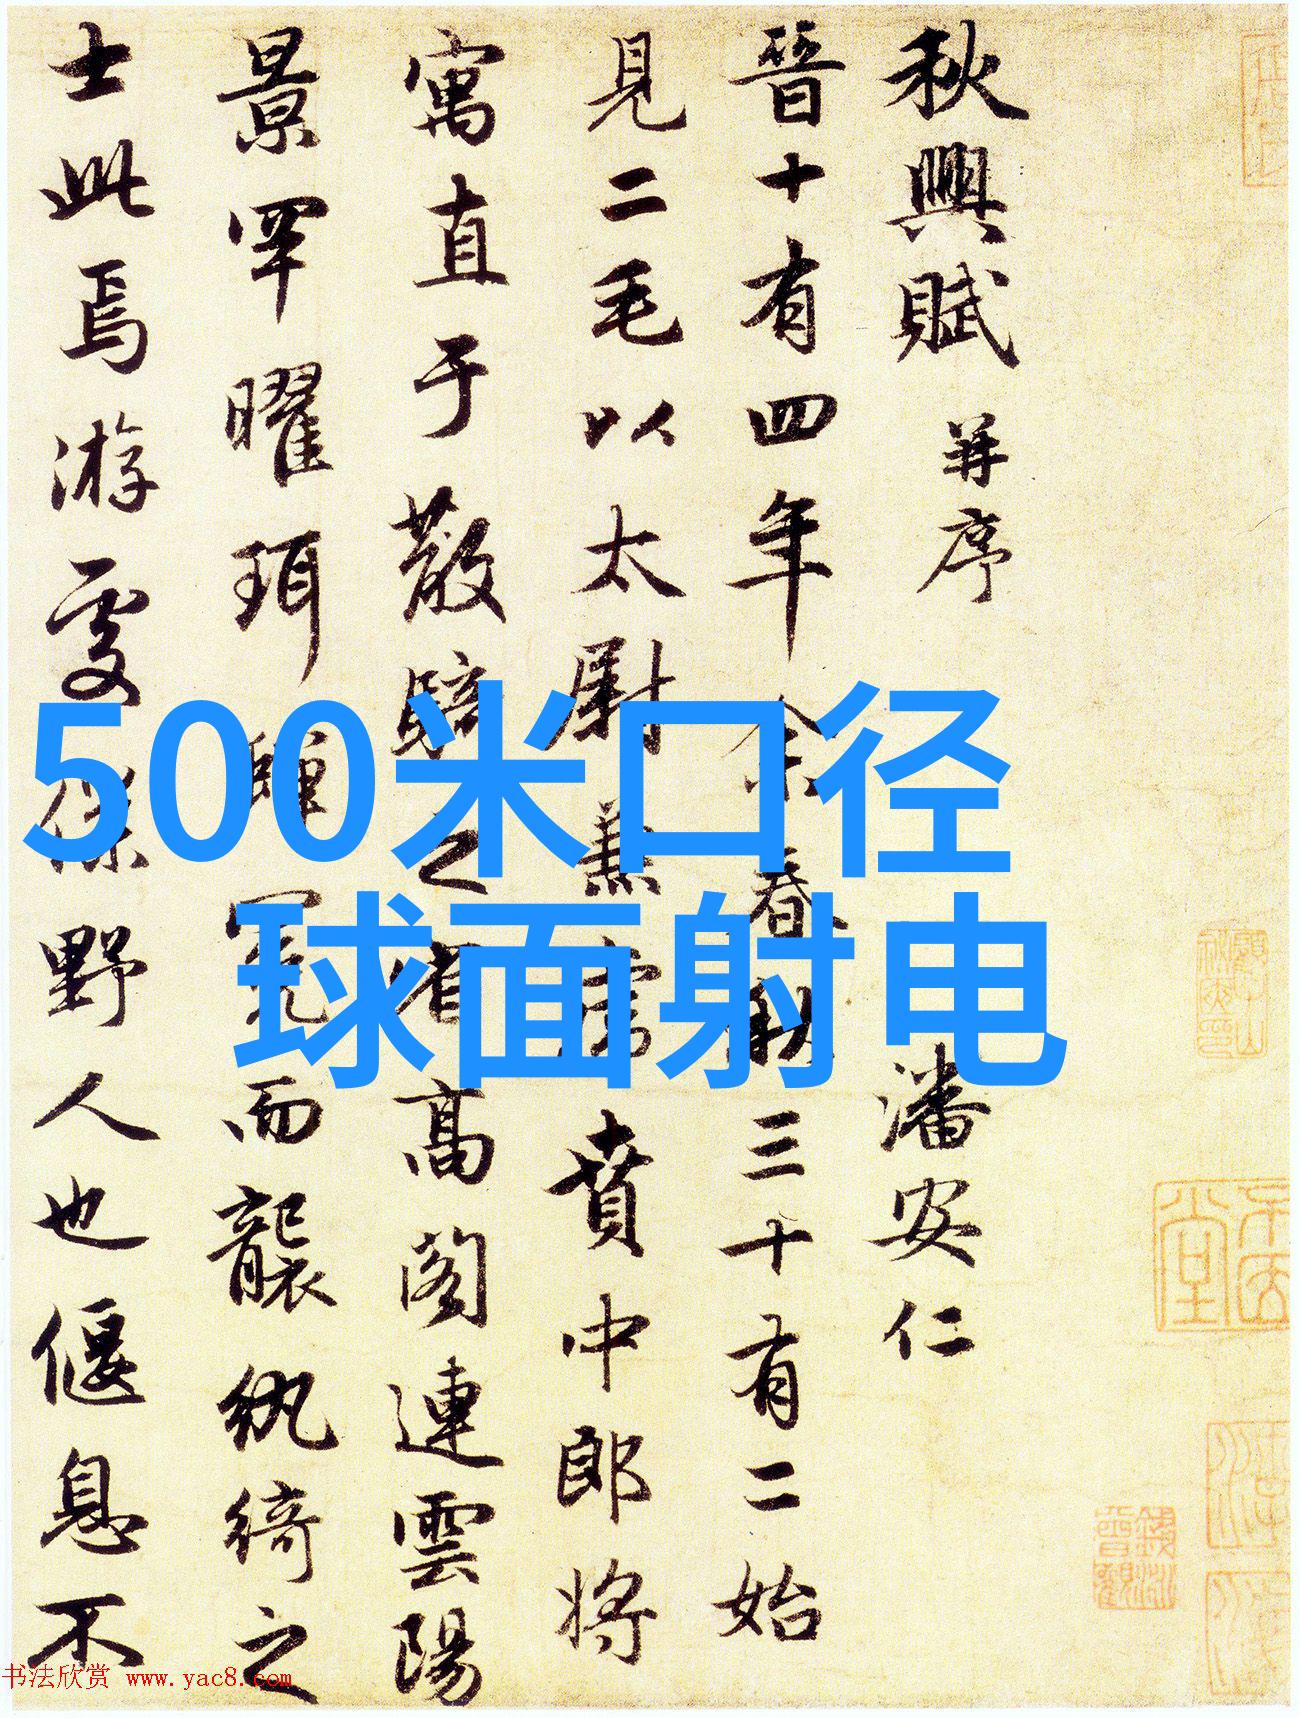 秋興賦 并序 潘安仁
晉十有四年余春秋三十有二始
見二毛以太尉兼虎賁中郎將
寓直于散騎之省高閣連雲陽
景罕曜珥蟬冕而襲紈綺之
士此焉游處僕野人也偃息不
500米口径
球面射电
书法欣赏 www.yac8.com